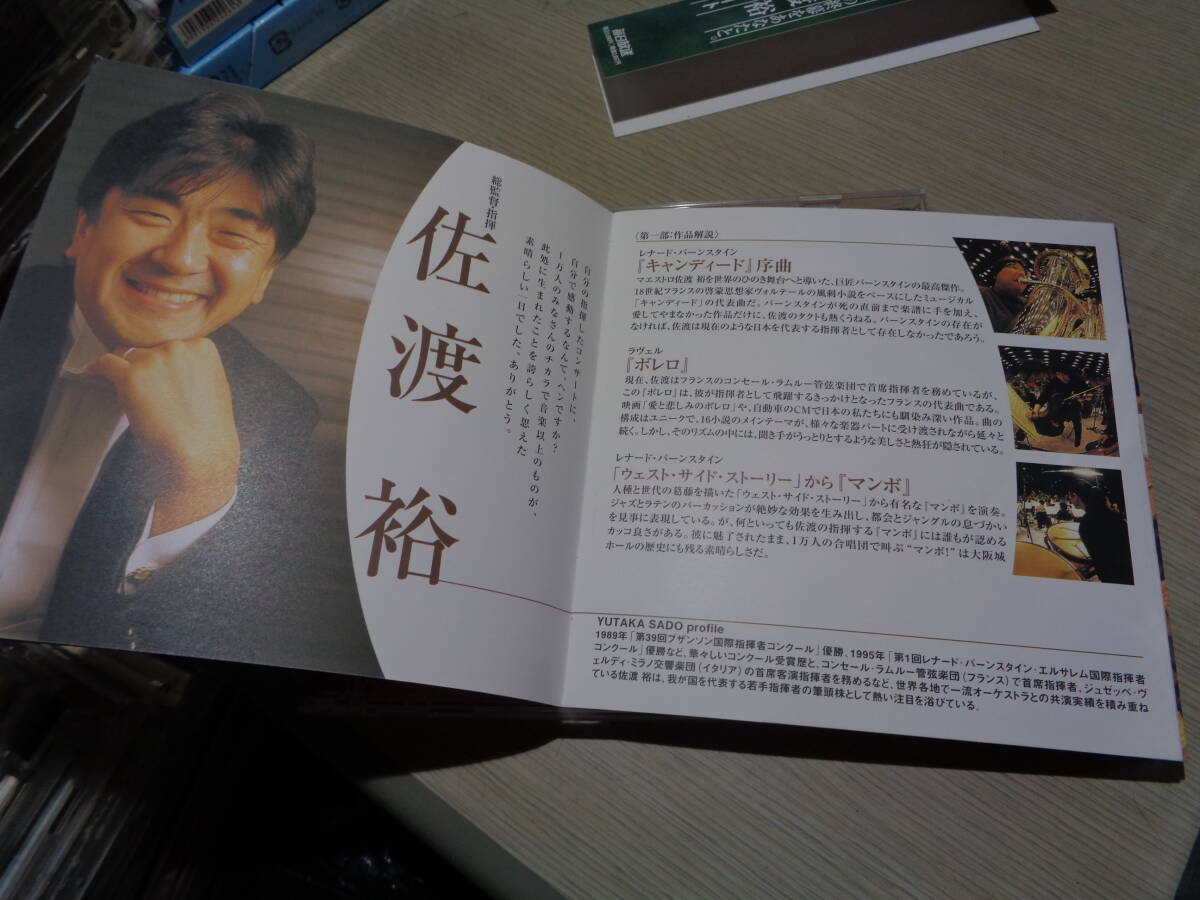 総監督・指揮
佐渡 裕
自分の指揮したコンサートに、
自分で感動するなんて、ヘンですか？
1万人のみなさんのチカラで音楽以上のものが、
此処に生まれたことを誇らしく思えた
素晴らしい一日でした。ありがとう。
〈第一部：作品解説〉
レナード・バーンスタイン
『キャンディード』序曲
マエストロ佐渡 裕を世界のひのき舞台へと導いた、巨匠バーンスタインの最高傑作。
18世紀フランスの啓蒙思想家ヴォルテールの風刺小説をベースにしたミュージカル
「キャンディード」の代表曲だ。バーンスタインが死の直前まで楽譜に手を加え、
愛してやまなかった作品だけに、佐渡のタクトも熱くうねる。バーンスタインの存在が
なければ、佐渡は現在のような日本を代表する指揮者として存在しなかったであろう。
ラヴェル
『ボレロ』
現在、佐渡はフランスのコンセール・ラムルー管弦楽団で首席指揮者を務めているが、
この『ボレロ』は、彼が指揮者として飛躍するきっかけとなったフランスの代表曲である。
映画「愛と悲しみのボレロ」や、自動車のCMで日本の私たちにも馴染み深い作品。曲の
構成はユニークで、16小節のメインテーマが、様々な楽器パートに受け渡されながら延々と
続く。しかし、そのリズムの中には、聞き手がうっとりとするような美しさと熱狂が隠されている。
レナード・バーンスタイン
「ウェスト・サイド・ストーリー」から『マンボ』
人種と世代の葛藤を描いた「ウェスト・サイド・ストーリー」から有名な『マンボ』を演奏。
ジャズとラテンのパーカッションが絶妙な効果を生み出し、都会とジャングルの息づかい
を見事に表現している。が、何といっても佐渡の指揮する『マンボ』には誰もが認める
カッコ良さがある。彼に魅了されたまま、1万人の合唱団で叫ぶ“マンボ！”は大阪城
ホールの歴史にも残る素晴らしさだ。
YUTAKA SADO profile
1989年「第39回ブザンソン国際指揮者コンクール」優勝、1995年「第1回レナード・バーンスタイン・エルサレム国際指揮者
コンクール」優勝など、華々しいコンクール受賞歴と、コンセール・ラムルー管弦楽団（フランス）で首席指揮者、ジュゼッペ・ヴ
ェルディ・ミラノ交響楽団（イタリア）の首席客演指揮者を務めるなど、世界各地で一流オーケストラとの共演実績を積み重ね
ている佐渡 裕は、我が国を代表する若手指揮者の筆頭株として熱い注目を浴びている。
毎日放送